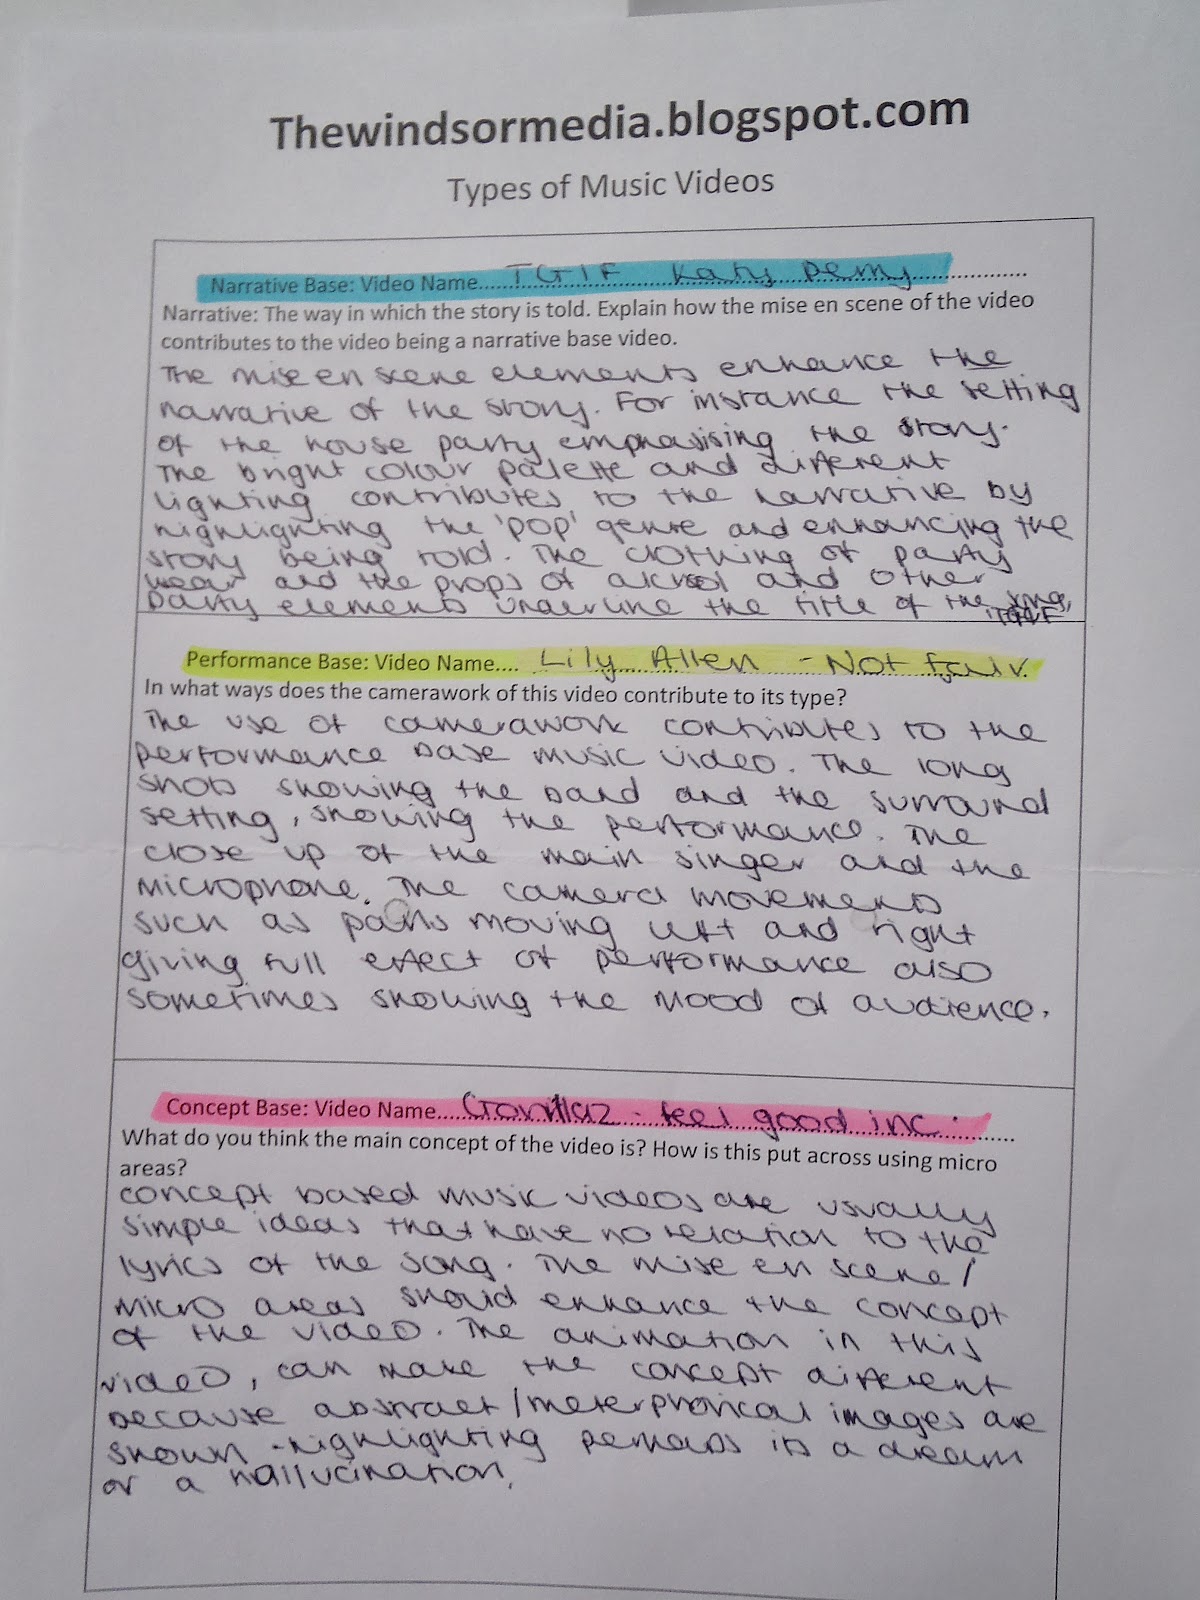 Thewindsormedia.blogspot.com
Types of Music Videos
Narrative Base: Video Name.... TGIF Katy Perry
Narrative: The way in which the story is told. Explain how the mise en scene of the video
contributes to the video being a narrative base video.
The mise en scene elements enhance the
narrative of the story. For instance the setting
of the house party emphasising the story.
The bright colour palette and different
lighting contributes to the narrative by
highlighting the 'pop' genre and enhancing the
story being told. The clothing of party
wear and the props of alcohol and other
party elements underline the title of the song,
TGIF
Performance Base: Video Name.... Lily Allen - Not fair.
In what ways does the camerawork of this video contribute to its type?
The use of camerawork contributes to the
performance base music video. The long
shots showing the band and the surround
setting, showing the performance. The
close up of the main singer and the
microphone. The camera movements
such as pans moving left and right
giving full effect of performance also
sometimes showing the mood of audience.
Concept Base: Video Name.... Gorillaz - feel good inc.
What do you think the main concept of the video is? How is this put across using micro
areas?
concept based music videos are usually
simple ideas that have no relation to the
lyrics of the song. The mise en scene/
micro areas should enhance the concept
of the video. The animation in this
video, can make the concept different
because abstract/meterphorical images are
shown - highlighting perhaps its a dream
or a hallucination.